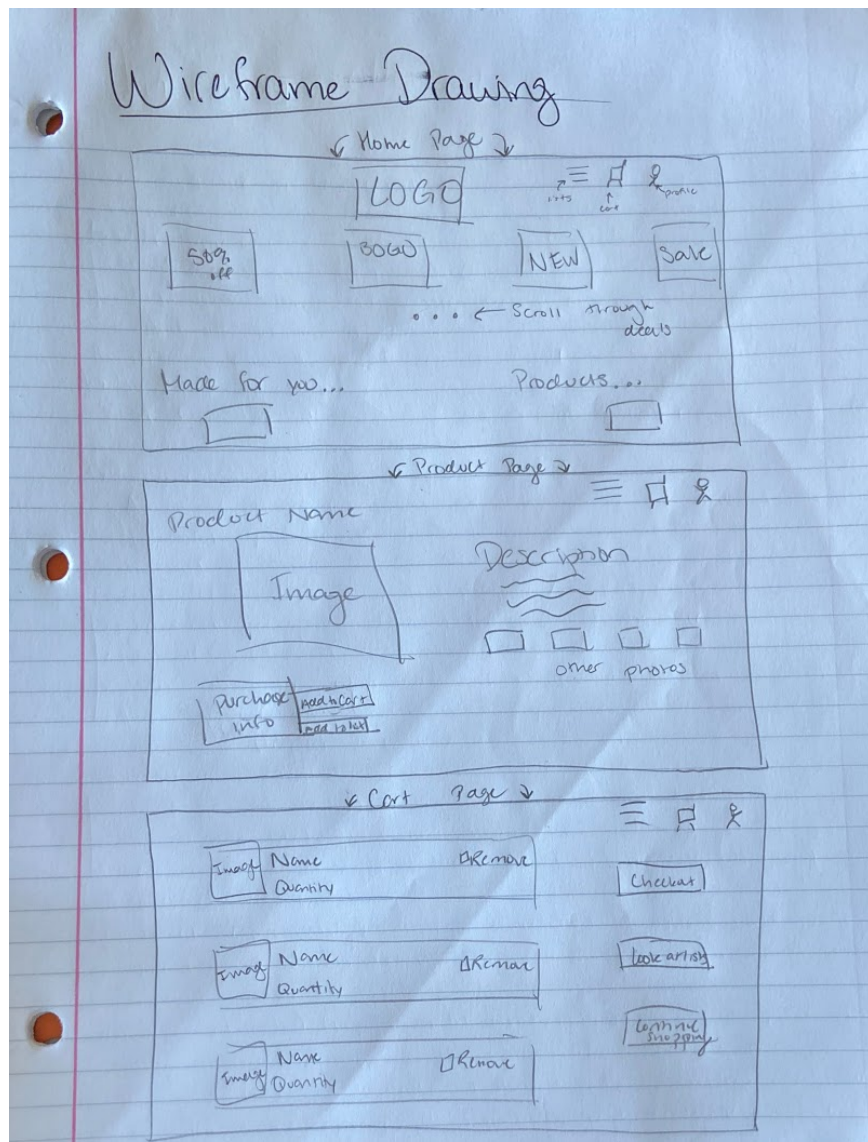 Wireframe Drawing
Home Page
LOGO
cart
profile
50% off
BOGO
NEW
Sale
Scroll through deals
Made for you...
Products...
Product Page
Product Name
Image
Description
other photos
Purchase info
Add to Cart
Add to list
Cart Page
Image Name Remove
Quantity
Checkout
Image Name Remove
Quantity
Look at list
Image Name Remove
Quantity
Continue Shopping